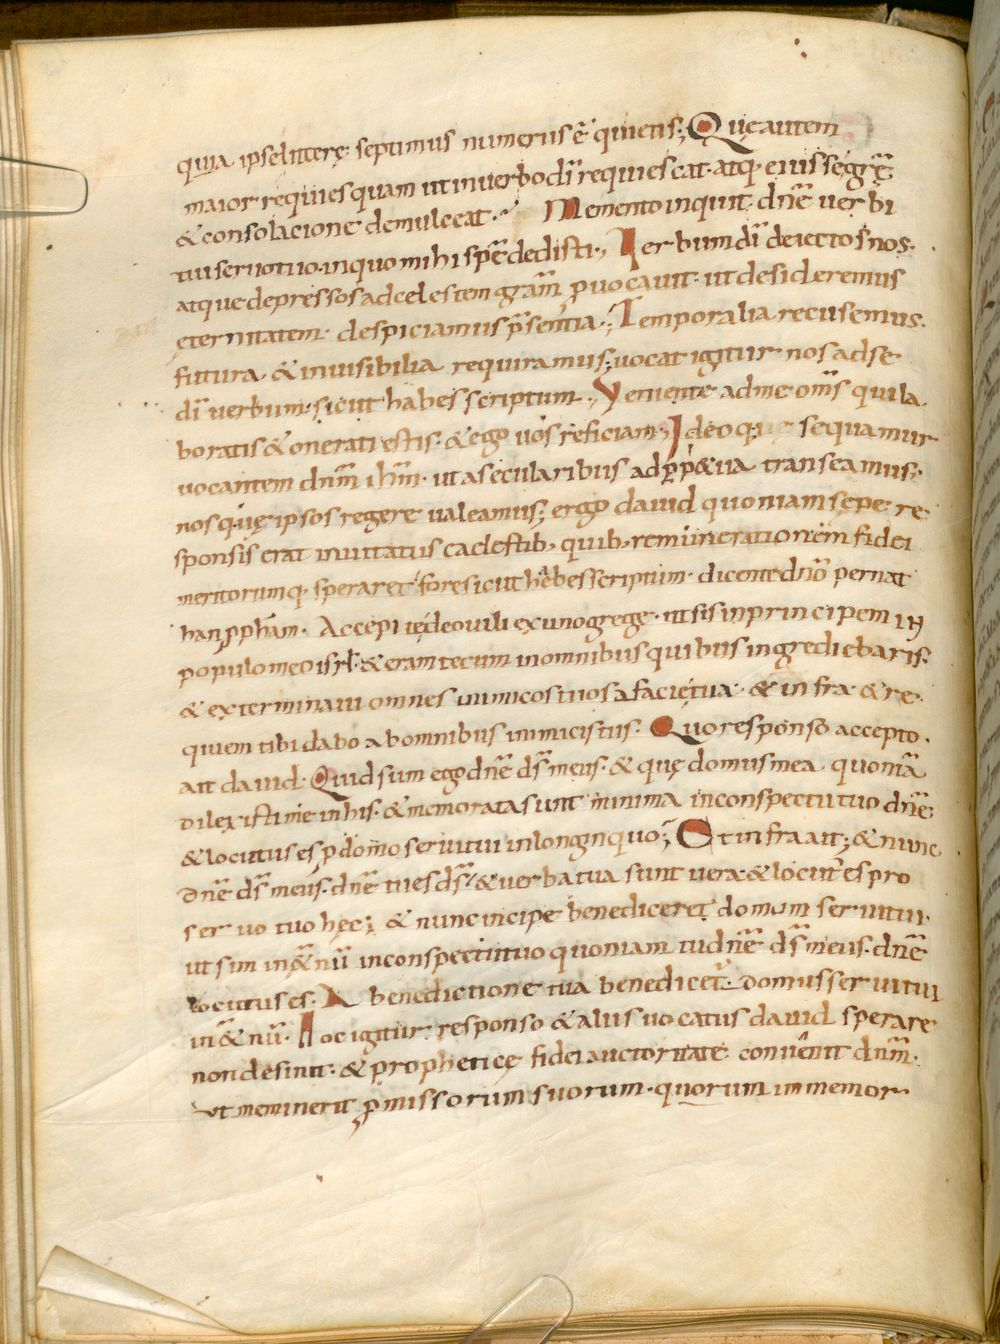 quia ipse littere septimus numerus ē quietis; Que autem
maior requies quam ut in uerbo dī requiescat· atq· eius se grā
& consolacione demulceat· Memento inquit dnē uerbi
tui seruo tuo· in quo mihi spē dedisti· Uerbum dī deiectos nos·
atque depressos ad celestem grām prouocauit· ut desideremus
eternitatem· despiciamus psentia; Temporalia recusemus·
futura· & inuisibilia requiramus; uocat igitur nos ad se
dī uerbum· sicut habes scriptum· Venente ad me oms qui la
boratis & onerati estis· & ego uos reficiam; Ideoque sequamur
uocantem dnm ihm· ut a secularibus ad ppetua transeamus·
nosque ipsos regere ualeamus; ergo dauid quoniam sepe re
sponsis erat inuitatus caelestib· quib· remunerationem fidei
meritorumq· speraret fore sicut habes scriptum· dicente dno per nat
han ppham· Accepi te de ouili ex uno grege· ut sis in principem in
populo meo isrl· & eram tecum in omnibus quibus ingrediebaris·
& exterminaui omnes inimicos tuos a facie tua· & infra & re
quiem tibi dabo ab omnibus inimicis tuis· Quo responso accepto·
ait dauid· Quid sum ego dnē ds meus· & que domus mea quoniā
dilexisti me in his· & memorata sunt minima in conspectu tuo dnē
& locutus es p domo serui tui in longinquo; Et infra ait; & nunc
dnē ds meus· dnē tu es ds· & uerba tua sunt uera· & locutus es pro
seruo tuo hec; & nunc incipe benediceret domum serui tui·
ut sim in &nū in conspectu tuo quoniam tu dnē ds meus· dnē
locutus es· A benedictione tua benedicet· domus serui tui
in &nū· Hoc igitur responso & aliis uocatus dauid sperare
non desinit· & prophetice fidei auctoritate conuenit dnm·
ut meminerit pmissorum suorum· quorum immemor